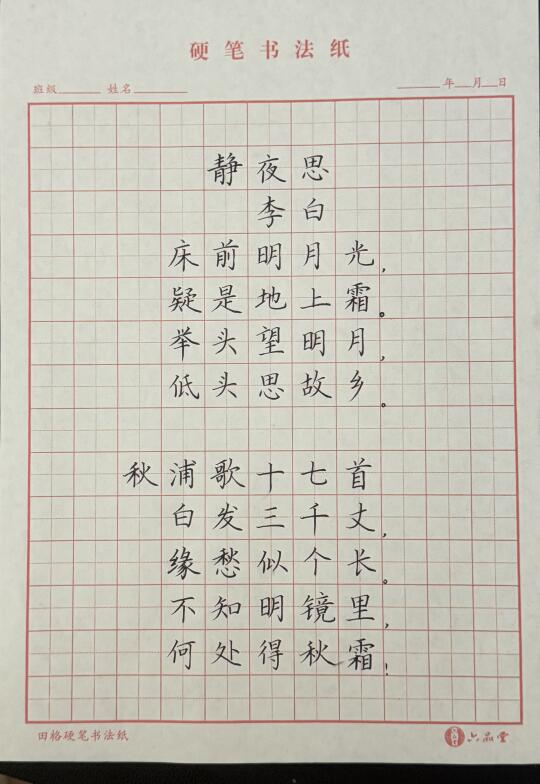 硬笔书法纸
班级 姓名 年 月 日
静夜思
李白
床前明月光，
疑是地上霜。
举头望明月，
低头思故乡。
秋浦歌十七首
白发三千丈，
缘愁似个长。
不知明镜里，
何处得秋霜！
田格硬笔书法纸 六品堂